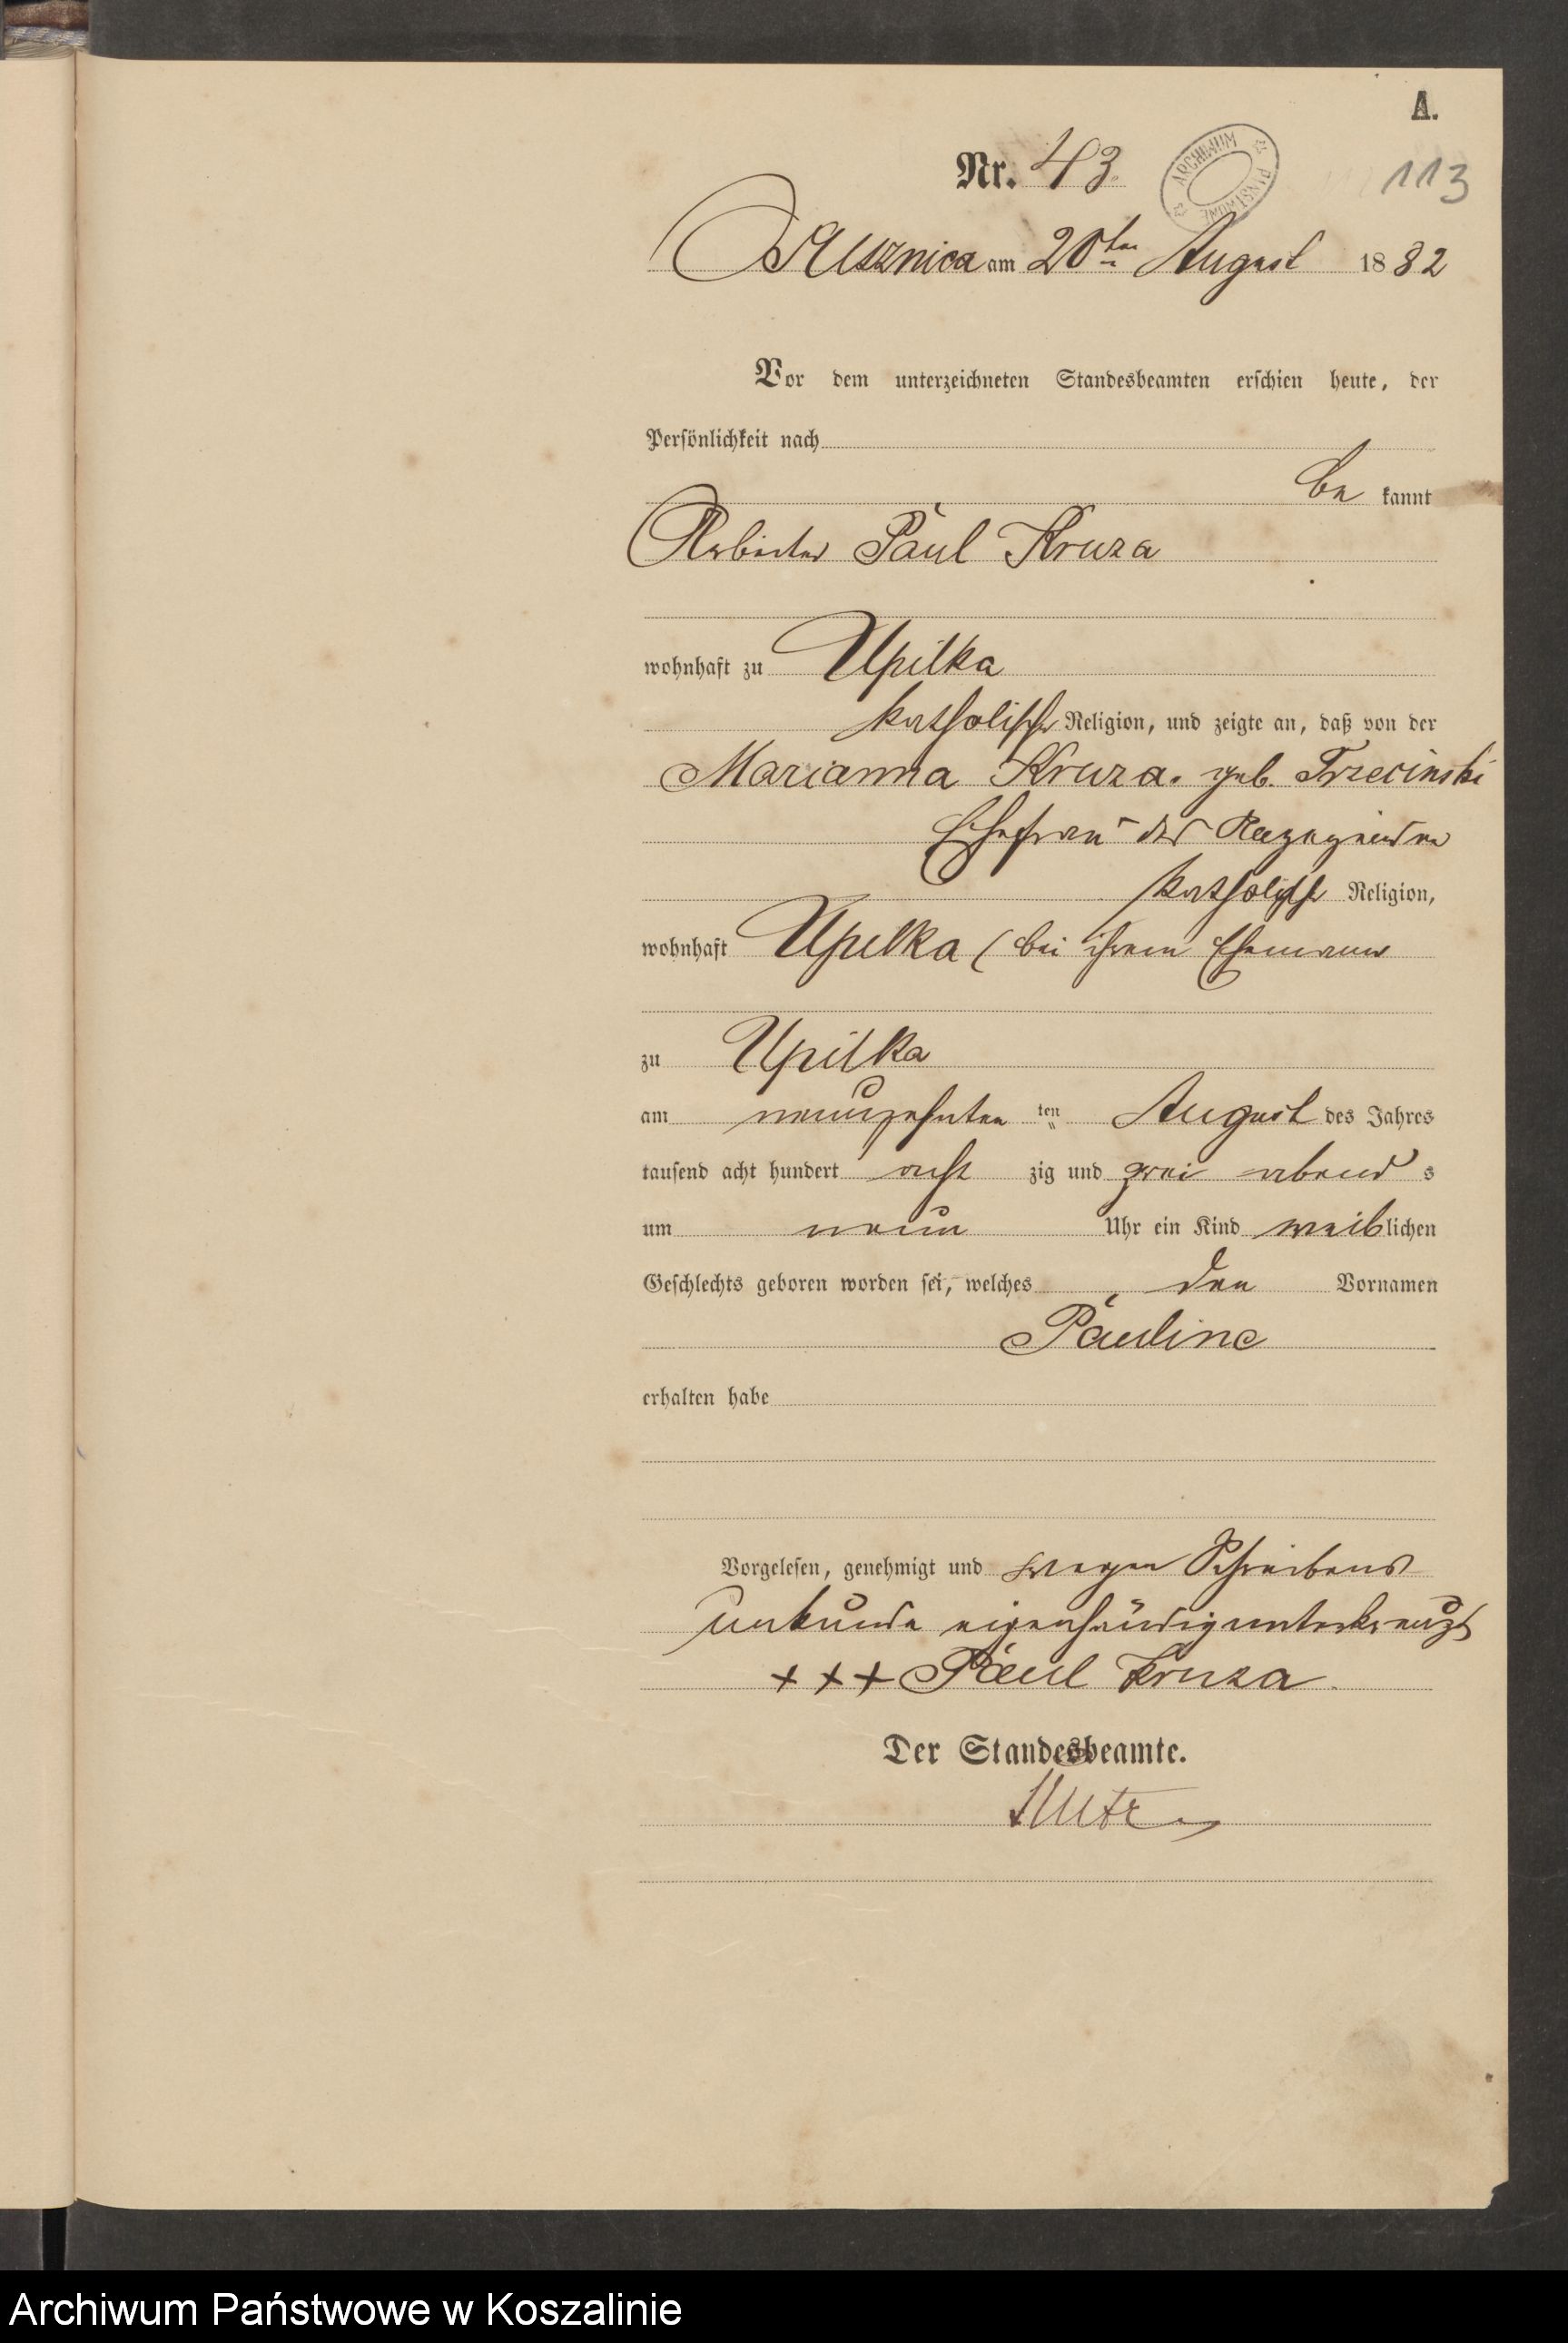 A.
Nr. 43.
ARCHIWUM PAŃSTWOWE
113
am 20ten August 1882
Vor dem unterzeichneten Standesbeamten erschien heute, der
Persönlichkeit nach
be kannt
Arbeiter Paul Kruza
wohnhaft zu Upilka
katholischer Religion, und zeigte an, daß von der
Marianna Kruza. geb. Trzecinski
Ehefrau des Anzeigenden
katholischer Religion,
wohnhaft Upilka (bei ihrem Ehemann
zu Upilka
am neunzehnten ten August des Jahres
tausend acht hundert acht zig und zwei abend s
um neun Uhr ein Kind weiblichen
Geschlechts geboren worden sei, welches den Vornamen
Pauline
erhalten habe
Vorgelesen, genehmigt und wegen Schreibens
unkunde eigenhändig unterkreuzt
+++ Paul Kruza.
Der Standesbeamte.
Archiwum Państwowe w Koszalinie